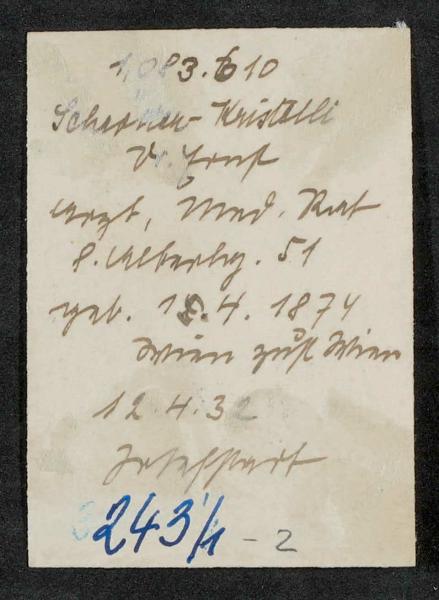 1,083.610
Scherner-Kristelli
Dr. Ernst
Arzt, Med. Rat
8. Alberthg. 51
geb. 18.4. 1874
Wien zust Wien
12.4.32
Josefstadt
243/1 - 2